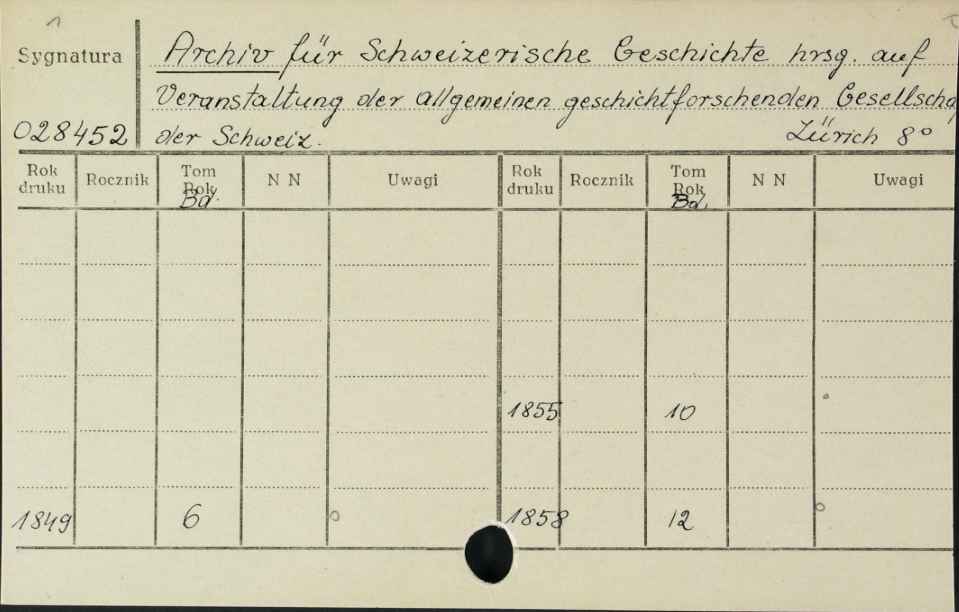 1
Sygnatura
Archiv für Schweizerische Geschichte hrsg. auf
Veranstaltung der allgemeinen geschichtforschenden Gesellscha
028452 der Schweiz. Zürich 8º
Rok druku Rocznik Tom Rok Bd. N N Uwagi Rok druku Rocznik Tom Rok Bd. N N Uwagi
1855 10 o
1849 6 o 1858 12 o